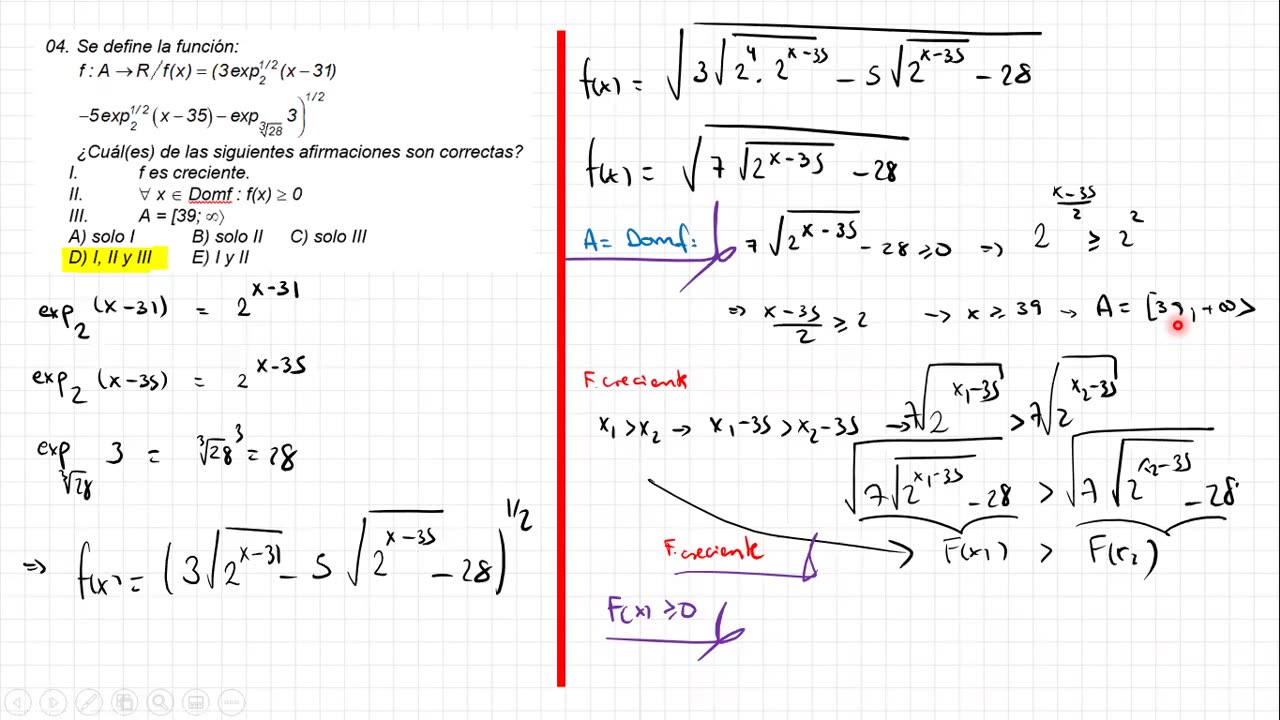 04. Se define la función:
f : A → R/f(x) = (3exp₂^{1/2}(x – 31)
–5exp₂^{1/2}(x – 35) – exp_{∛28} 3)^{1/2}
¿Cuál(es) de las siguientes afirmaciones son correctas?
I. f es creciente.
II. ∀ x ∈ Domf : f(x) ≥ 0
III. A = [39; ∞⟩
A) solo I B) solo II C) solo III
D) I, II y III E) I y II
exp₂ (x-31) = 2^{x-31}
exp₂ (x-35) = 2^{x-35}
exp_{∛28} 3 = ∛28³ = 28
⇒ f(x) = (3√(2^{x-31}) - 5√(2^{x-35}) - 28)^{1/2}
f(x) = √(3√(2⁴. 2^{x-35}) - 5√(2^{x-35}) - 28)
f(x) = √(7√(2^{x-35}) - 28)
A = Domf: 7√(2^{x-35}) - 28 ≥ 0 ⇒ 2^{(x-35)/2} ≥ 2²
⇒ (x-35)/2 ≥ 2 → x ≥ 39 → A = [39, +∞>
F. creciente
x₁ > x₂ → x₁-35 > x₂-35 → 7√(2^{x₁-35}) > 7√(2^{x₂-35})
√(7√(2^{x₁-35}) - 28) > √(7√(2^{x₂-35}) - 28)
F. creciente F(x₁) > F(x₂)
F(x) ≥ 0